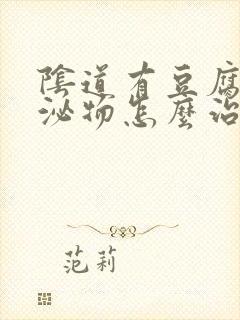 陰道有豆腐
泌物怎麼治
范莉